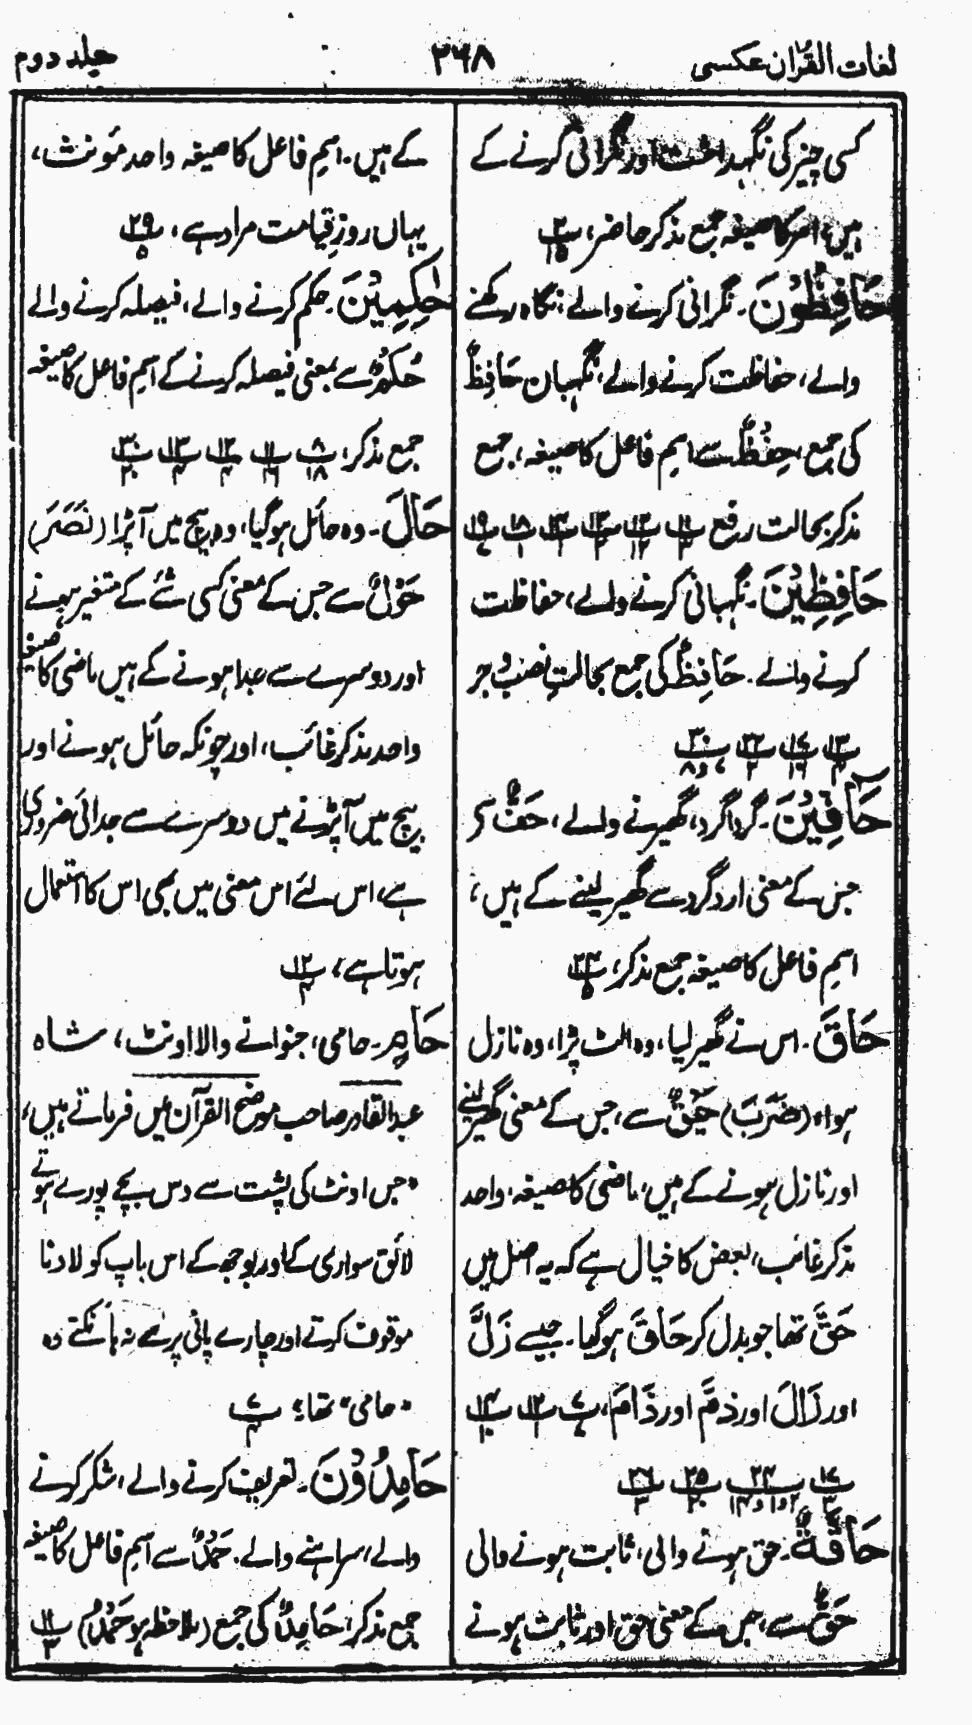 لغات القرآن عکسی
۲۶۸
جلد دوم
کسی چیز کی نگہداشت اور نگرانی کرنے کے
ہیں، امر کا صیغہ جمع مذکر حاضر، پ ۲ ۱۵
حَافِظُونَ۔ نگرانی کرنے والے، نگاہ رکھنے
والے، حفاظت کرنے والے، نگہبان حَافِظٌ
کی جمع، حِفْظٌ سے اسمِ فاعل کا صیغہ، جمع
مذکر بحالت رفع
حَافِظِیْنَ۔ نگہبانی کرنے والے، حفاظت
کرنے والے۔ حَافِظٌ کی جمع بحالتِ نصب و جر
حَآفِّیْنَ۔ گرداگرد، گھیرنے والے، حَفٌّ سے
جس کے معنی اردگرد سے گھیر لینے کے ہیں،
اسمِ فاعل کا صیغہ جمع مذکر، پ ۲۴ ۵
حَاقَ۔ اس نے گھیر لیا، وہ الٹ پڑا، وہ نازل
ہوا، (ضَرَبَ) حَیْقٌ سے، جس کے معنی گھیر لینے
اور نازل ہونے کے ہیں، ماضی کا صیغہ، واحد
مذکر غائب، بعض کا خیال ہے کہ یہ اصل میں
حَقَّ تھا جو بدل کر حَاقَ ہو گیا۔ جیسے زَلَّ
اور زَالَ اور ذَمَّ اور ذَامَ،
حَآقَّةٌ۔ حق ہونے والی، ثابت ہونے والی
حَقٌّ سے، جس کے معنی حق اور ثابت ہونے
کے ہیں۔ اسمِ فاعل کا صیغہ واحد مؤنث،
یہاں روزِ قیامت مراد ہے، پ ۲۹ ۵
حٰکِمِیْنَ۔ حکم کرنے والے، فیصلہ کرنے والے
حُکْمٌ سے بمعنی فیصلہ کرنے کے اسمِ فاعل کا صیغہ
جمع مذکر،
حَالَ۔ وہ حائل ہو گیا، وہ بیچ میں آ پڑا (نَصَرَ)
حَوْلٌ سے جس کے معنی کسی شے کے متغیر ہونے
اور دوسرے سے جدا ہونے کے ہیں ماضی کا صیغہ
واحد مذکر غائب، اور چونکہ حائل ہونے اور
بیچ میں آ پڑنے میں دوسرے سے جدائی ضروری
ہے، اس لئے اس معنی میں بھی اس کا استعمال
ہوتا ہے، پ ۱۲ ۴
حَامٍ۔ حامی، جنوانے والا اونٹ، شاہ
عبدالقادر صاحب موضح القرآن میں فرماتے ہیں،
"جس اونٹ کی پشت سے دس بچے پورے ہوتے
لائق سواری کے اور بوجھ کے اس باپ کو لادنا
موقوف کرتے اور چارے پانی پر سے نہ ہانکتے وہ
"حامی" تھا؛ پ ۷ ۴
حَامِدُوْنَ۔ تعریف کرنے والے، شکر کرنے
والے، سراہنے والے، حَمْدٌ سے اسمِ فاعل کا صیغہ
جمع مذکر، حَامِدٌ کی جمع (ملاحظہ ہو حَمْدٌ) پ ۱۱ ۳